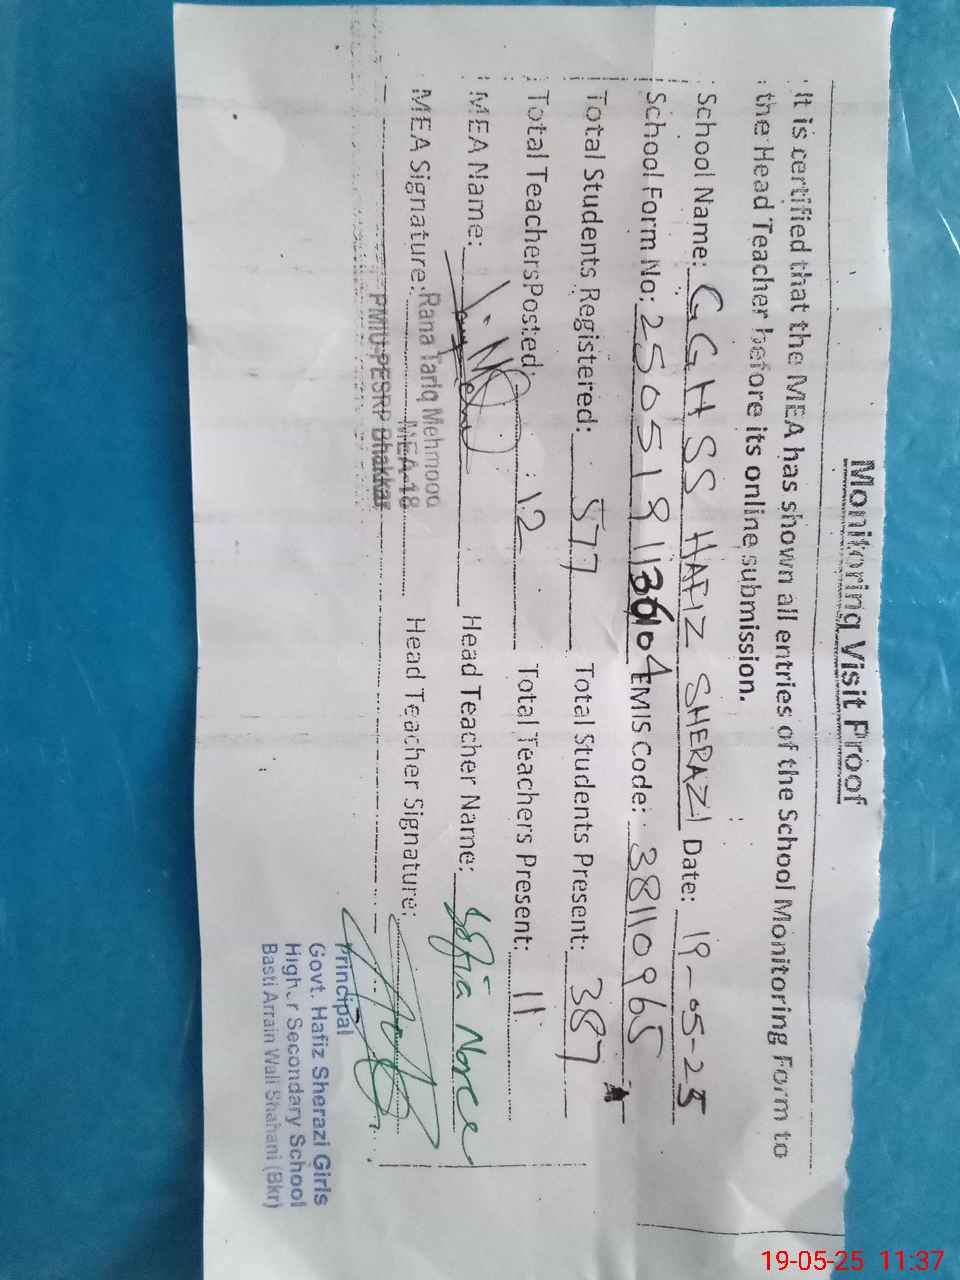 Monitoring Visit Proof
It is certified that the MEA has shown all entries of the School Monitoring Form to
the Head Teacher before its online submission.
School Name: GGHSS HAFIZ SHERAZI Date: 19-05-25
School Form No: EMIS Code: 38110965
Total Students Registered: 577 Total Students Present: 387
Total Teachers Posted: 12 Total Teachers Present: 11
MEA Name: Head Teacher Name:
MEA Signature: Head Teacher Signature:
Rana Tariq Mehmood
MEA-18
PMIU-PESRP Bhakkar
Principal
Govt. Hafiz Sherazi Girls
Higher Secondary School
Basti Arrain Wali Shahani (Bkr)
19-05-25 11:37